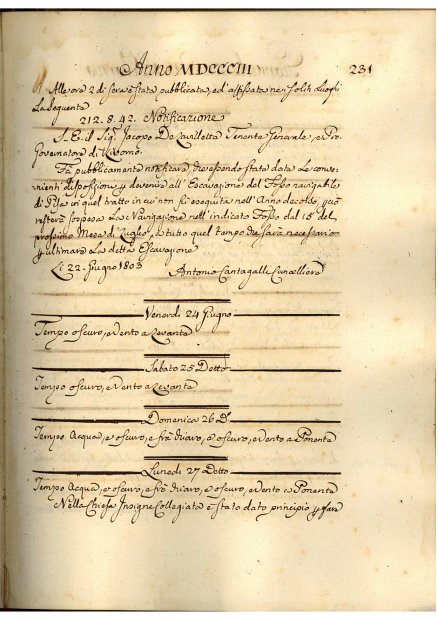 Anno MDCCCIII 231
Alle ore 2 di sera è stata pubblicata, ed' affissata nei soliti Luoghi
La Seguente
212. 8. 42. Notificazione
S. E. il Sig. Jacopo De Lavilletta Tenente Generale, e Pro
Governatore di Livorno.
Fà pubblicamente notificare, che essendo state date Le conve-
nienti disposizioni p devenire all' Escavazione del Fosso navigabile
di Pisa in quel tratto in cui non fù eseguita nell' Anno decorso,
resterà sospesa La Navigazione nell' indicato Fosso dal 18 del
prossimo Mese di Luglio, e tutto quel tempo che sarà necessario
p ultimare La detta Escavazione
Li 22. Giugno 1803 Antonio Cantagalli Cancelliere
Venerdì 24 Giugno
Tempo oscuro, e Vento a Levante
Sabato 25 Detto
Tempo oscuro, e Vento a Levante
Domenica 26 D.
Tempo Acqua, e oscuro, e frà chiaro, e oscuro, e Vento a Ponente
Lunedì 27 Detto
Tempo Acqua, e oscuro, e frà chiaro, e oscuro, e Vento a Ponente
Nella Chiesa Insigne Collegiata è stato dato principio p fare